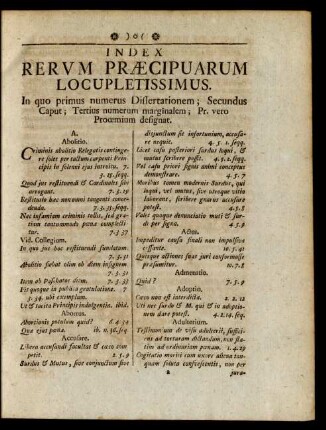 )o(
INDEX
RERVM PRÆCIPUARUM
LOCUPLETISSIMUS.
In quo primus numerus Dissertationem; Secundus
Caput; Tertius numerum marginalem; Pr. vero
Proœmium designat.
A.
Abolitio.
Criminis abolitio Relegatis continge-
re solet per tactum carpenti Prin-
cipis in solenni ejus introitu. 7.
3. 25. seqq.
Quod jus restituendi & Cardinales sibi
arrogant. 7. 3. 29
Restitutio hæc nocenti tangenti conce-
denda. 7. 3. 35. seqq.
Nec infamiam criminis tollit, sed gra-
tiam tantummodo pœnæ complecti-
tur. 7. 3. 37
Vid. Collegium.
In quo jus hoc restituendi fundatum.
7. 3. 31
Abolitio fiebat olim ob diem insignem
7. 3. 32
Item ob Paschatos diem. 7. 3. 33
Fit quoque in publica gratulatione. 7
3. 34. ubi exemplum.
Ut & tacita Principis indulgentia. ibid.
Abortus.
Abortionis poculum quid? 6. 4. 34
Quæ ejus pœna. ib. n. 36. seq.
Accusare.
Libera accusandi facultas & cuiq com-
petit. 2. 5. 9
Surdus & Mutus, sive conjunctim sive
disjunctim sit infortunium, accusa-
re nequit. 4. 5. 1. seqq.
Licet casu posteriori surdus loqui, &
mutus scribere possit. 4. 5. 2. seqq.
Vel casu priori signis animi conceptus
demonstrare. 4. 5. 7
Moribus tamen modernis Surdus, qui
loqui, vel mutus, sive utroque vitio
laborent, scribere gnarus accusare
potest. 4. 5. 4
Valet quoque denunciatio muti & sur-
di per signa. 4. 5. 8
Actus.
Impeditur causa finali non impulsiva
cessante. 10. 5. 41
Quisque actiones suas juri conformasse
præsumitur. 10. 7. 8
Ademtio.
Quid? 7. 5. 9
Adoptio.
Cæco non est interdicta. 2. 2. 12
Uti nec surdo & M. qui & in adoptio-
nem dare potest. 4. 2. 14. seq.
Adulterium.
Testimonium de viso adulterii, suffici-
ens ad torturam dictandam, non sta-
tim ad ordinariam pœnam. 1. 4. 29
Cogitatio mariti cum uxore adeno tan-
quam soluta concubescentis, non per
a
jura-